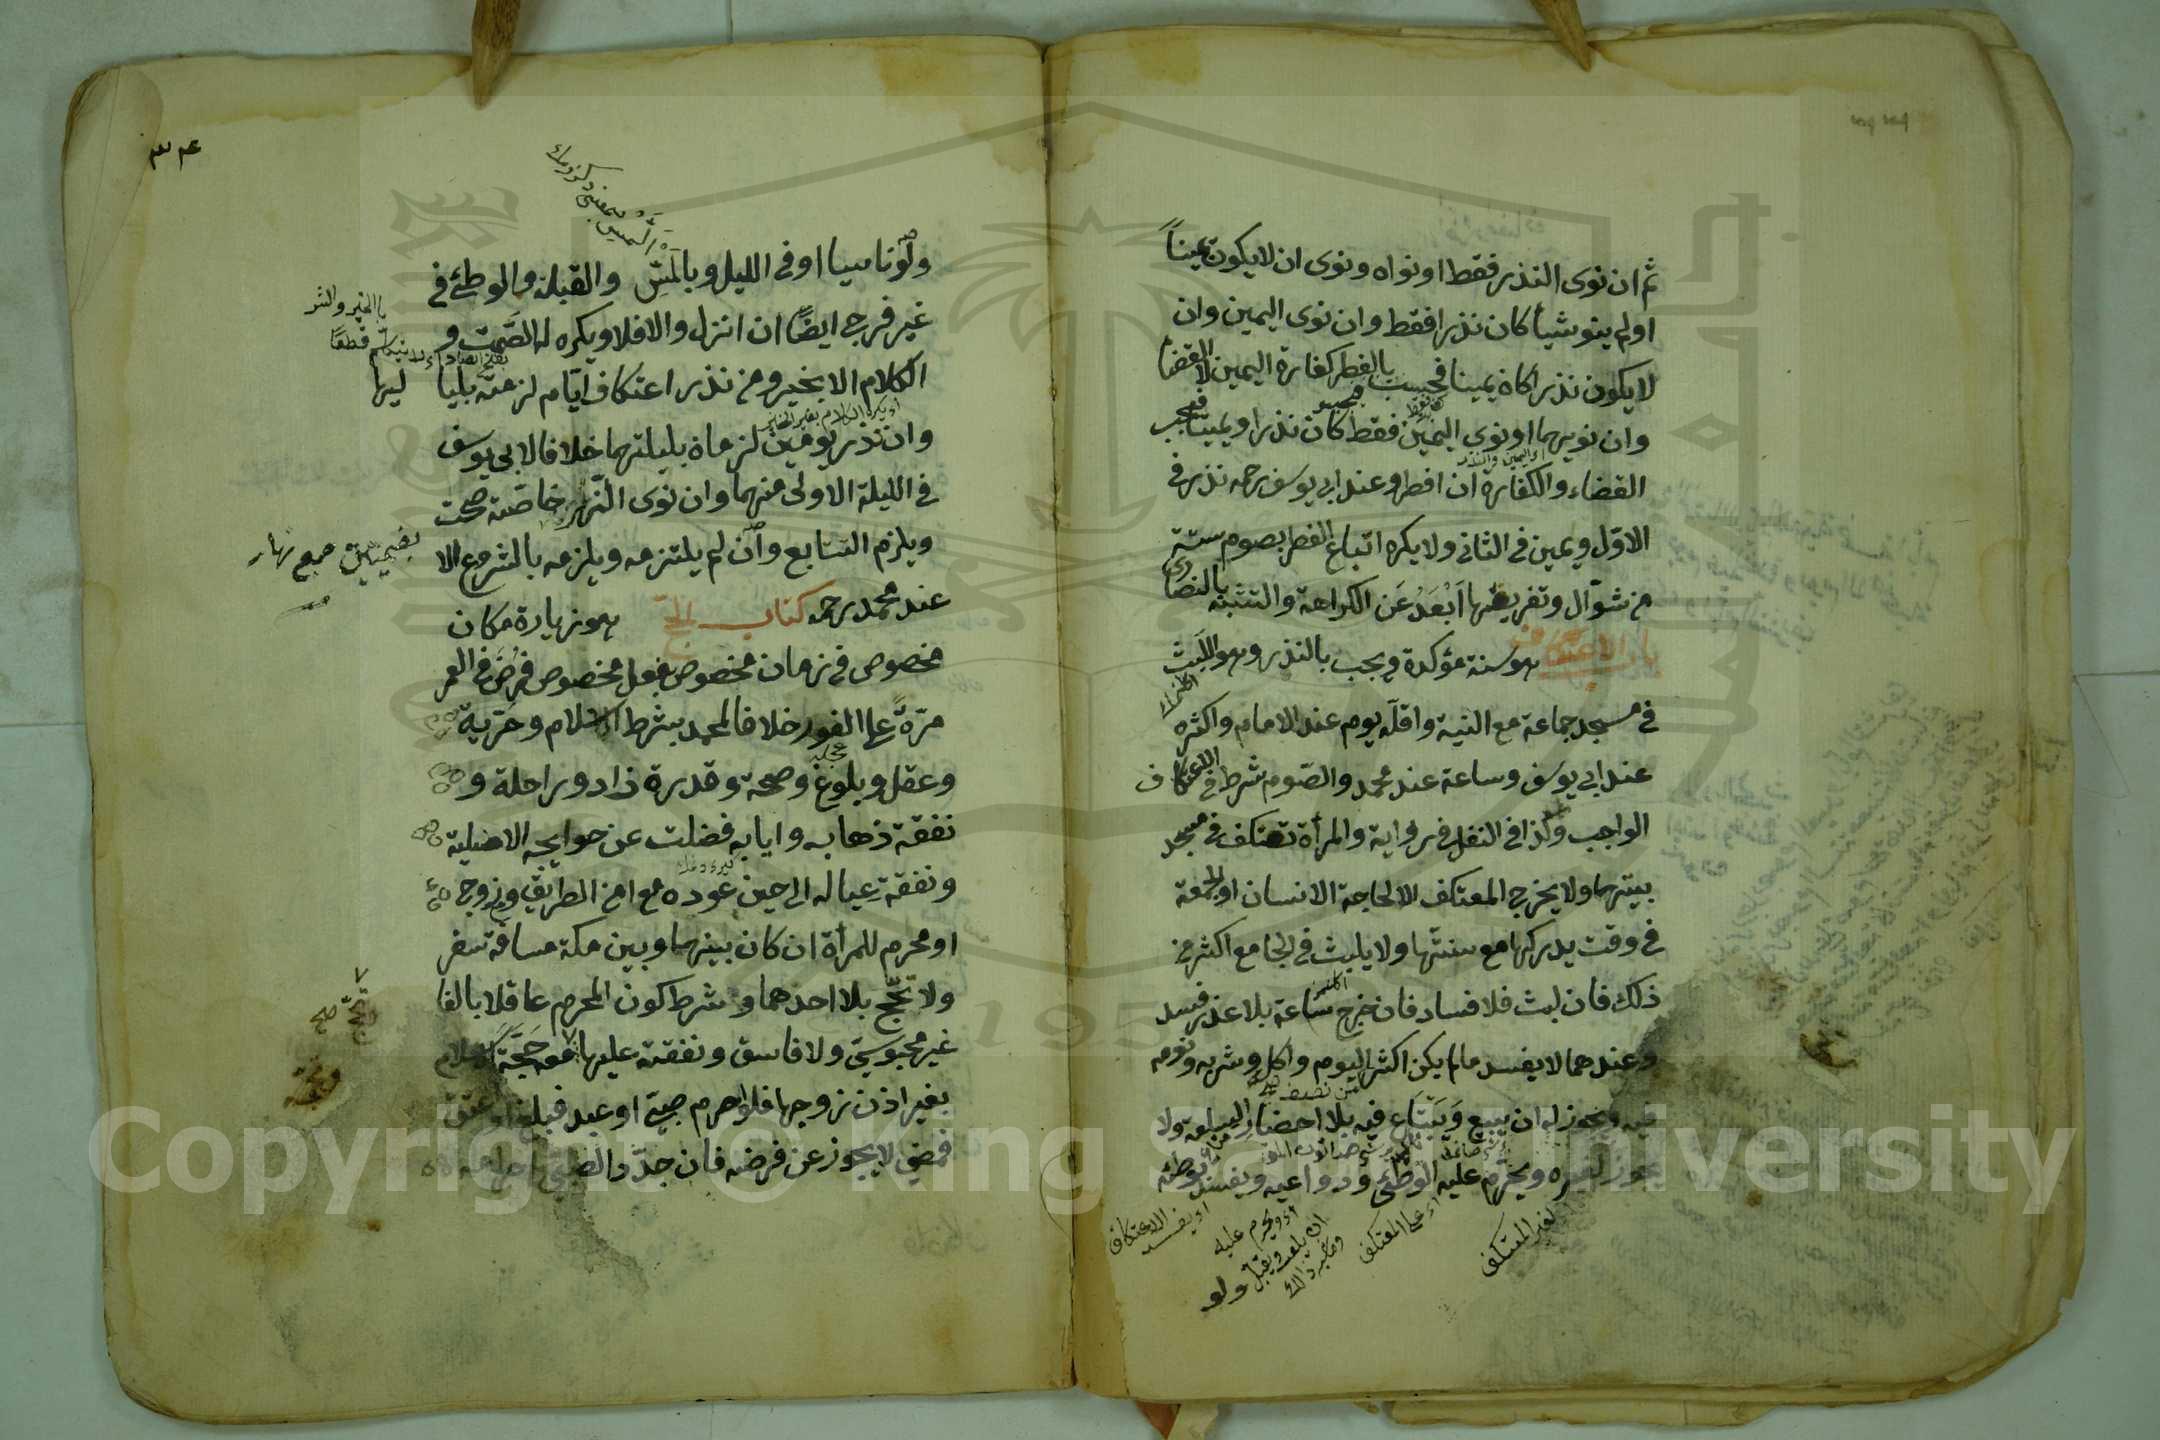 ثم ان نوى النذر فقط او نواه ونوى ان لا يكون يميناً
او لم ينو شيأ كان نذرا فقط وان نوى اليمين وان
لا يكون نذرا كان يمينا فحسب بالفطر كفارة اليمين لا القضا
وان نويهما او نوى اليمين فقط كان نذرا ويمينا فيجب
اى اليمين والنذر
القضاء والكفارة ان افطر وعند ابي يوسف رحمه نذر في
الاوّل ويمين في الثاني ولا يكره اتباع الفطر بصوم ستة
من شوّال وتفريقها اَبْعَدُ عَن الكراهة والتشبّه بالنصارى
باب الاعتكاف هو سنة مؤكدة ويجب بالنذر وهو اللَبث
في مسجد جماعة مع النية واقلّه يوم عند الامام واكثره
عند ابي يوسف وساعة عند محمد والصّوم شرط في الاعتكاف
الواجب وكذا في النفل في رواية والمرأة تعتكف في مسجد
بيتها ولا يخرج المعتكف الا لحاجة الانسان او الجمعة
في وقت يدركها مع سنتّها ولا يلبث في الجامع اكثر من
ذلك فان لبث فلا فساد فان خرج ساعة بلا عذر فسد
وعندهما لا يفسد مالم يكن اكثر اليوم واكله وشربه ونومه
من نصف
فيه ويجوز له ان يبيع وَيَبْتَاع فيه بلا احضار السلعة ولا
يجوز لغيره ويحرم عليه الوطئ ودواعيه ويفسد بوطئه
لغير المعتكف
اى على المعتكف
اى ويحرم عليه
اى يفسد الاعتكاف
ولو
ولو ناسيا او في الليل وبالمَسّ والقبلة والوطئ في
غير فرج ايضًا ان انزل والا فلا ويكره له الصَّمت و
بالخير والشر
اى لا يتكلم قطعًا
الكلام الا بخير ومن نذر اعتكاف ايّام لزمته بلياليها
اى يكره الكلام بغير الخير
وان نذر يومين لزماه بليلتهما خلافا لابي يوسف
في الليلة الاولى منهما وان نوى النّهر خاصّة صحت
جمع نهار
ويلزم التتابع وان لم يلتزمه ويلزمه بالشروع الا
عند محمد رحمه كتاب الحج هو زيارة مكان
مخصوص في زمان مخصوص بفعل مخصوص فُرِضَ في العمر
مرّةً على الفور خلافا لمحمد بشرط اسلام وحرّية
وعقل وبلوغ وصحة وقدرة زاد وراحلة و
نفقة ذهابه وايابه فضلت عن حوايجه الاصلية
ونفقة عياله الى حين عوده مع امن الطريق وزوج
او محرم للمرأة ان كان بينها وبين مكة مسافة سفر
ولا تحّج بلا احدهما وشرط كون المحرم عاقلا بالغا
غير مجوسيّ ولا فاسق ونفقته عليها معه حَجَّةَ الاسلام
وتحجّ صح
بغير اذن زوجها فلو احرم صبيّ او عبد فبلغ او عتق
فمضى لا يجوز عن فرضه فان جدّد الصبيّ احرامه
Copyright © King Saud University